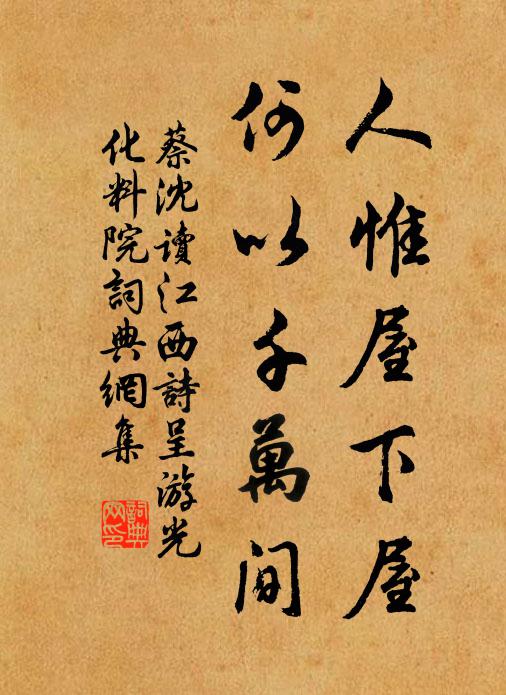 人惟屋下屋
何以千萬間
蔡沈讀江西詩呈游光
化料院詞典網集
詞典
网印